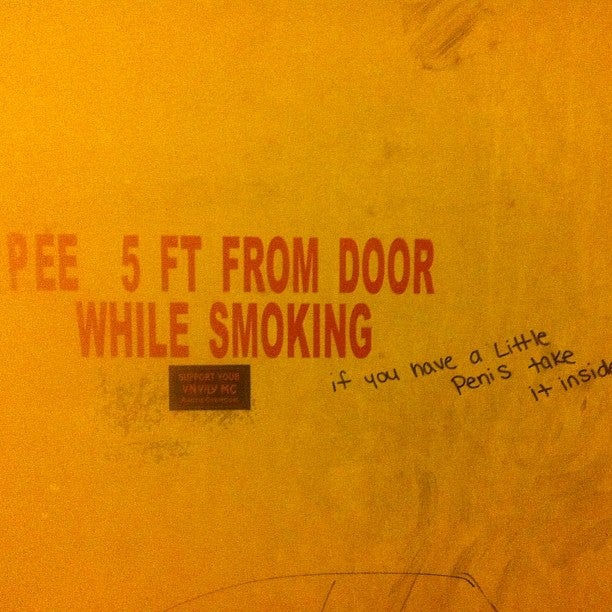 PEE 5 FT FROM DOOR
WHILE SMOKING
SUPPORT YOUR
MC
if you have a Little
Penis take
it inside